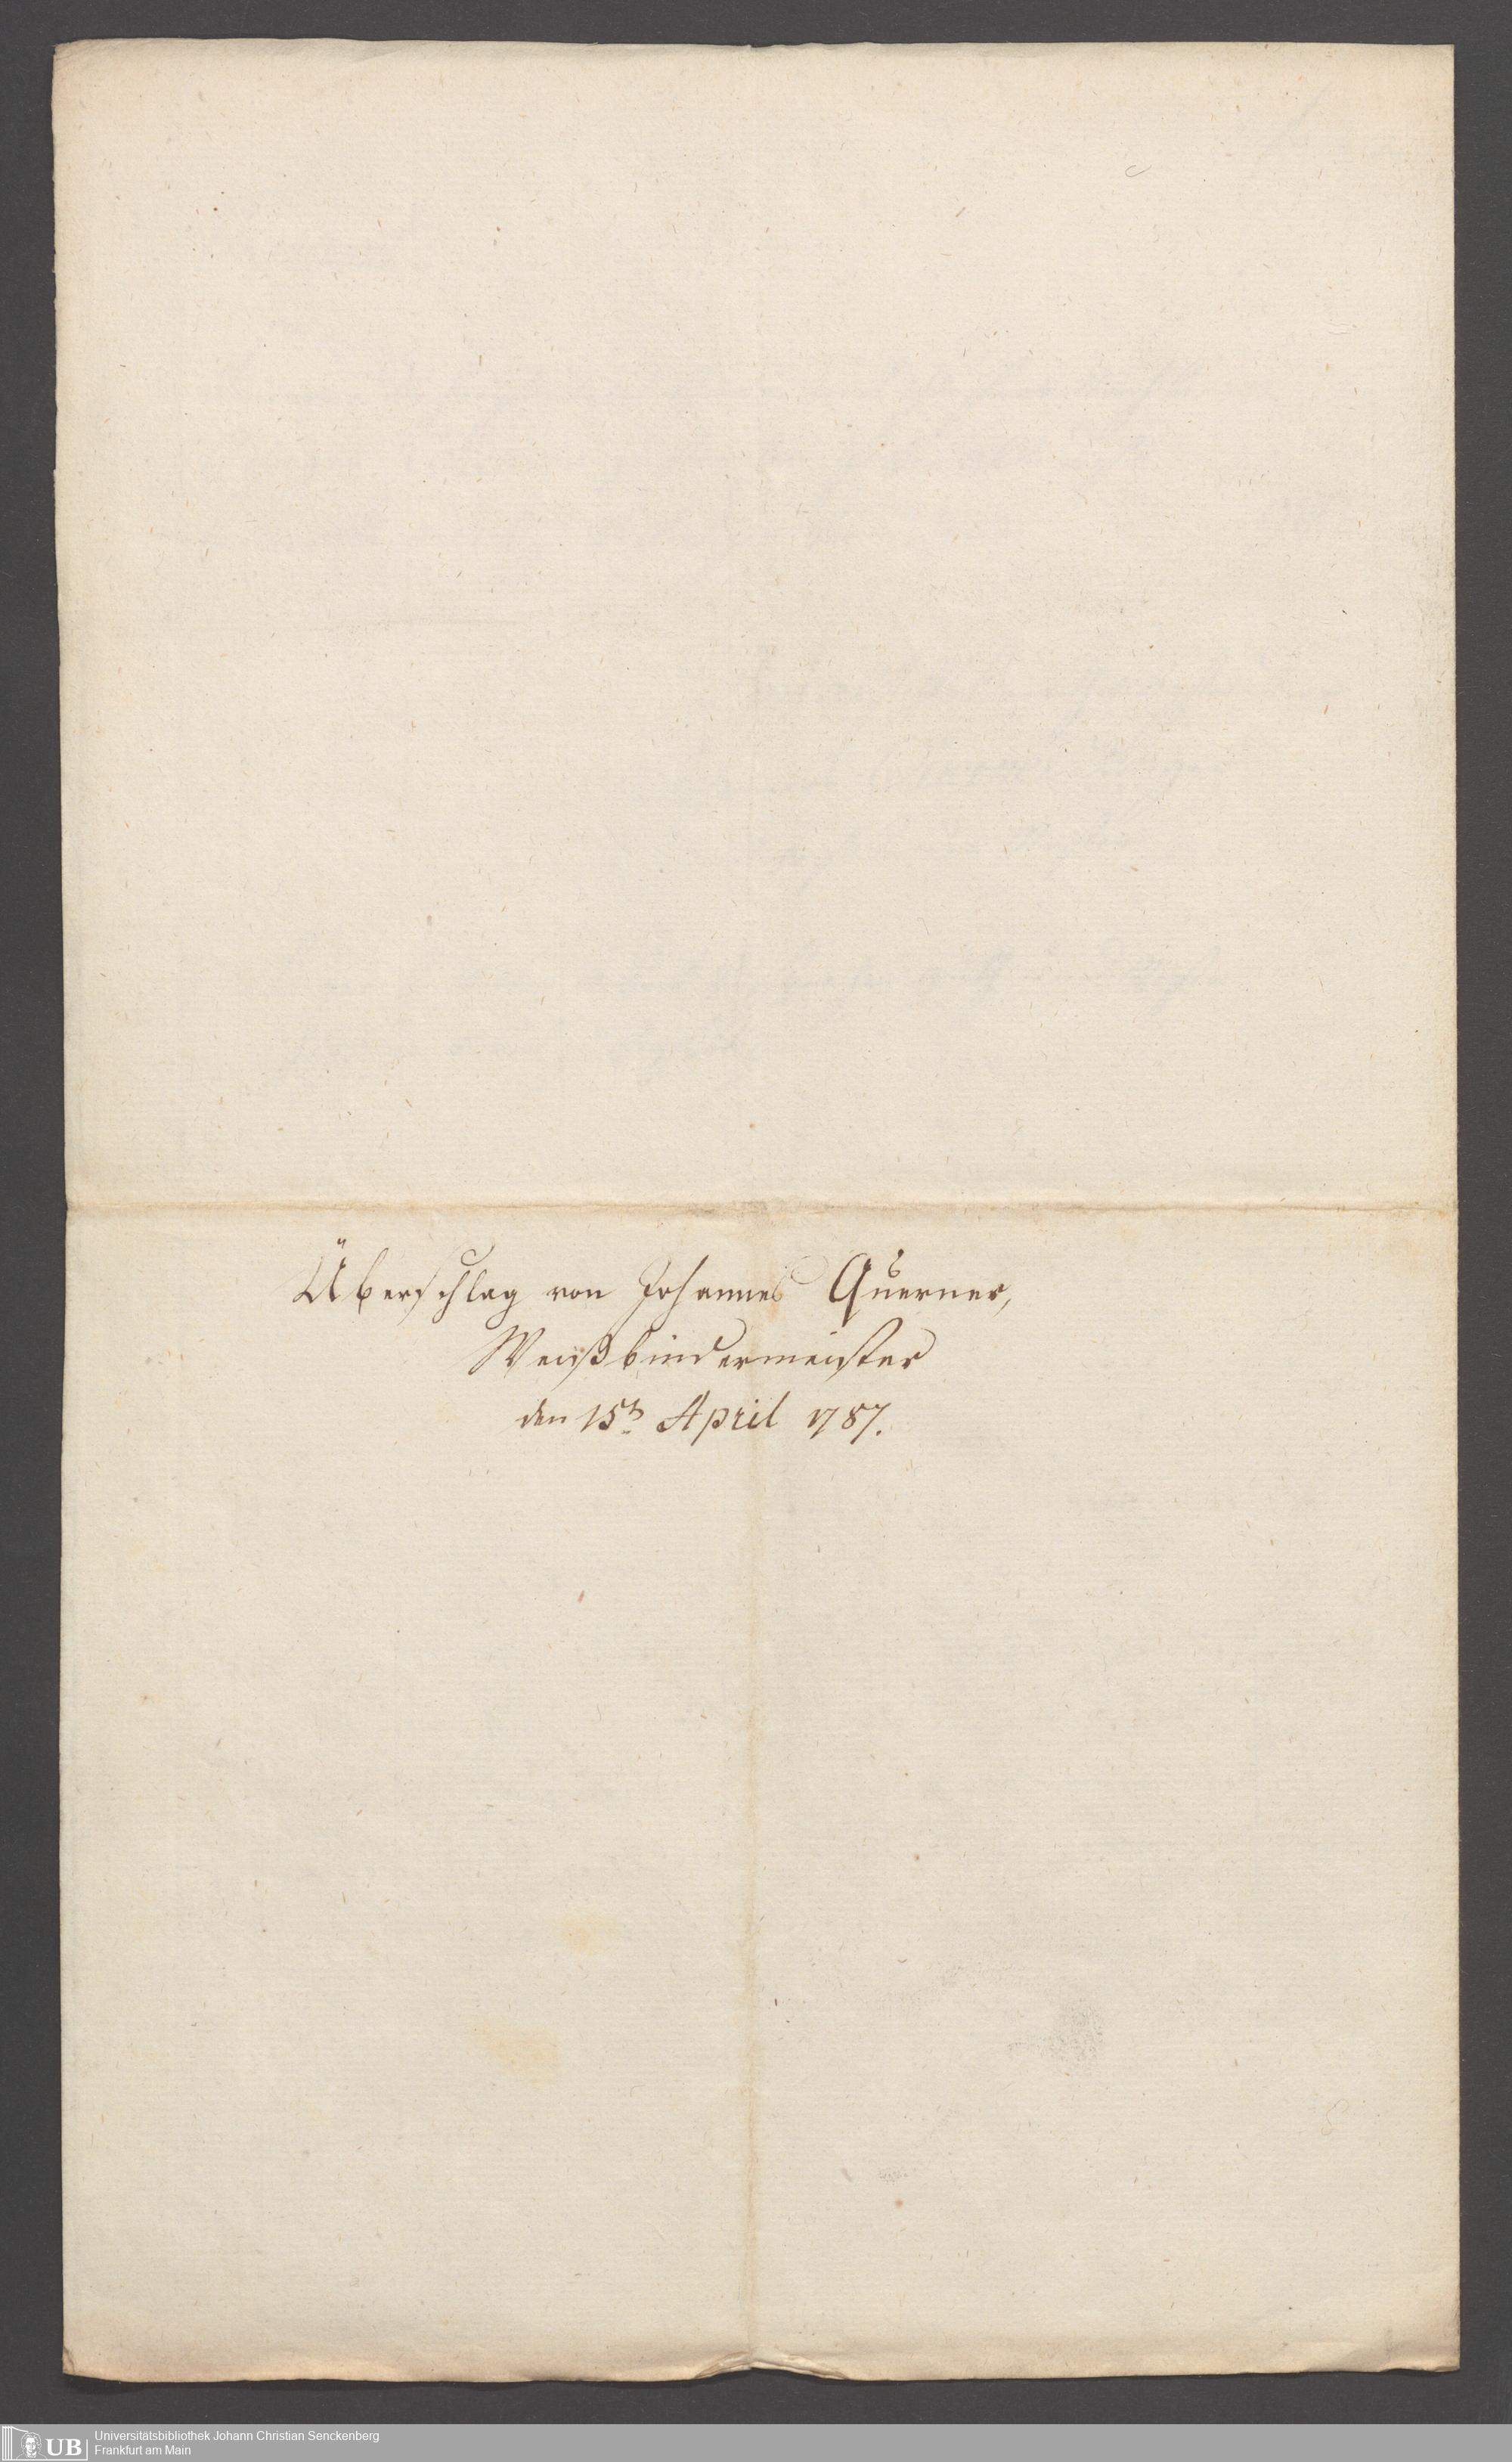 Überschlag von Johannes Querner,
Weißbindermeister
den 15t. April 1787.
UB Universitätsbibliothek Johann Christian Senckenberg
Frankfurt am Main